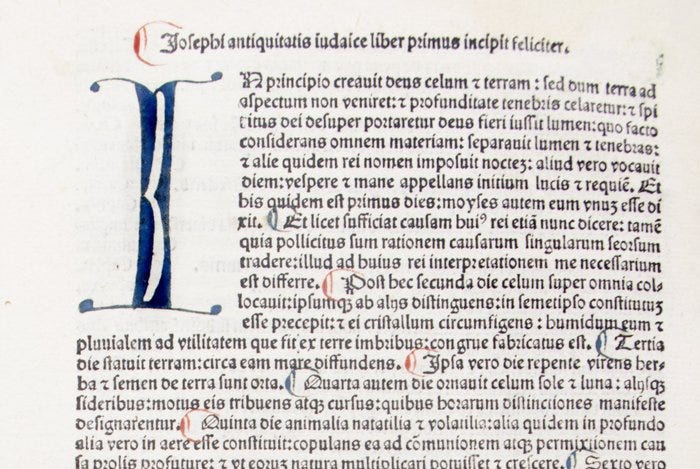 Josephi antiquitatis iudaice liber primus incipit feliciter.
IN principio creauit deus celum ⁊ terram : sed dum terra ad
aspectum non veniret:⁊ profunditate tenebris celaretur:⁊ spi
ritus dei desuper portaretur deus fieri iussit lumen:quo facto
considerans omnem materiam: separauit lumen ⁊ tenebras:
⁊ alie quidem rei nomen imposuit nocteȝ: aliud vero vocauit
diem:vespere ⁊ mane appellans initium lucis ⁊ requiē. Et
his quidem est primus dies:moyses autem eum vnuȝ esse di
xit. Et licet sufficiat causam huiꝰ rei etiā nunc dicere: tamē
quia pollicitus sum rationem causarum singularum seorsum
tradere:illud ad huius rei interpretationem me necessarium
est differre. Post hec secunda die celum super omnia col-
locauit:ipsumqꝫ ab alijs distinguens:in semetipso constitutuȝ
esse precepit:⁊ ei cristallum circumfigens : humidum eum ⁊
pluuialem ad vtilitatem que fit ex terre imbribus:congrue fabricatus est. Tertia
die statuit terram:circa eam mare diffundens. Ipsa vero die repente virens her-
ba ⁊ semen de terra sunt orta. Quarta autem die ornauit celum sole ⁊ luna: alijsqꝫ
sideribus:motus eis tribuens atqꝫ cursus:quibus horarum distinctiones manifeste
designarentur. Quinta die animalia natatilia ⁊ volatilia:alia quidem in profundo
alia vero in aere esse constituit:copulans ea ad cōmunionem atqꝫ permixtionem cau
sa prolis profuture: ⁊ vt eoruȝ natura multiplicari potuisset ⁊ crescere. Sexto vero